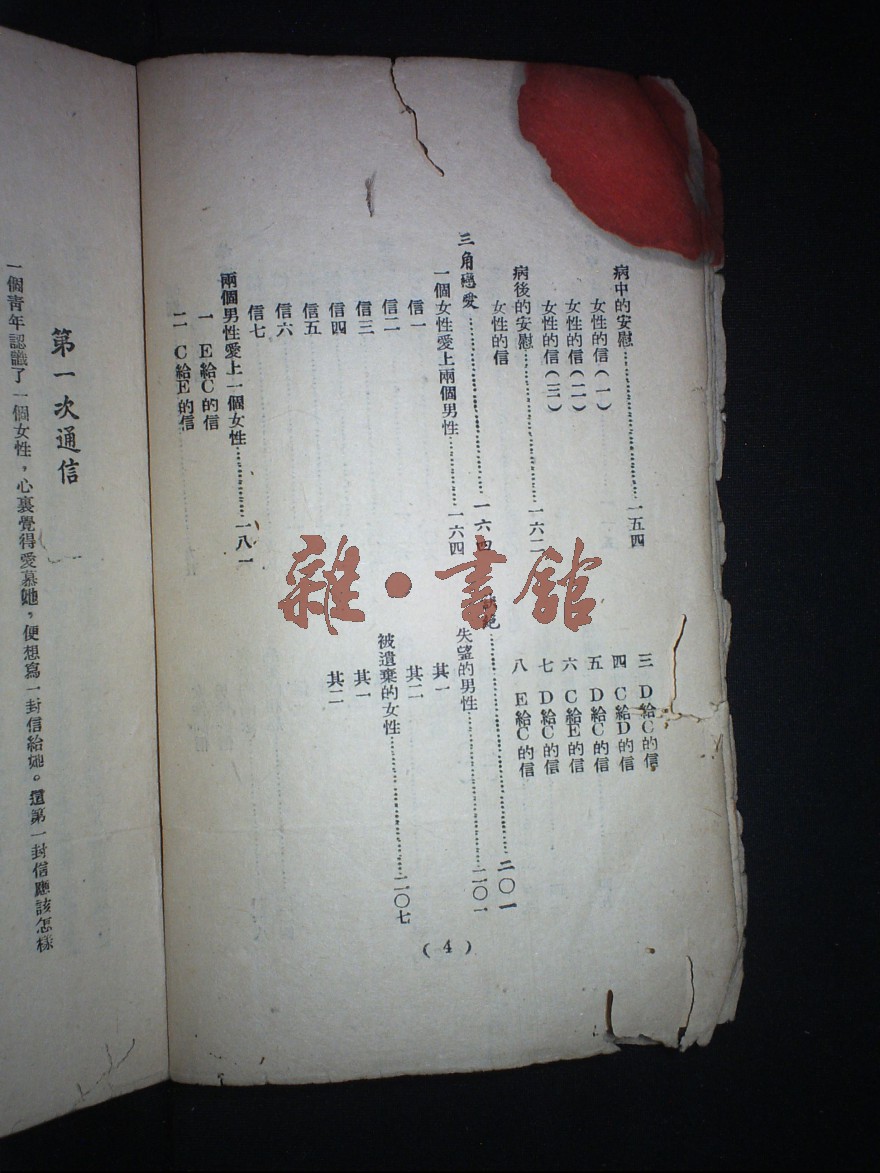 病中的安慰……一五四
女性的信（一）
女性的信（二）
女性的信（三）
病後的安慰……一六二
女性的信
三角戀愛……一六四
一個女性愛上兩個男性……一六四
信一
信二
信三
信四
信五
信六
信七
兩個男性愛上一個女性……一八一
一 E給C的信
二 C給E的信
三 D給C的信
四 C給D的信
五 D給C的信
六 C給E的信
七 D給C的信
八 E給C的信
……二〇一
失望的男性……二〇一
其一
其二
被遺棄的女性……二〇七
其一
其二
（4）
雜·書館
第一次通信
一個青年認識了一個女性，心裏覺得愛慕她，便想寫一封信給她。這第一封信應該怎樣